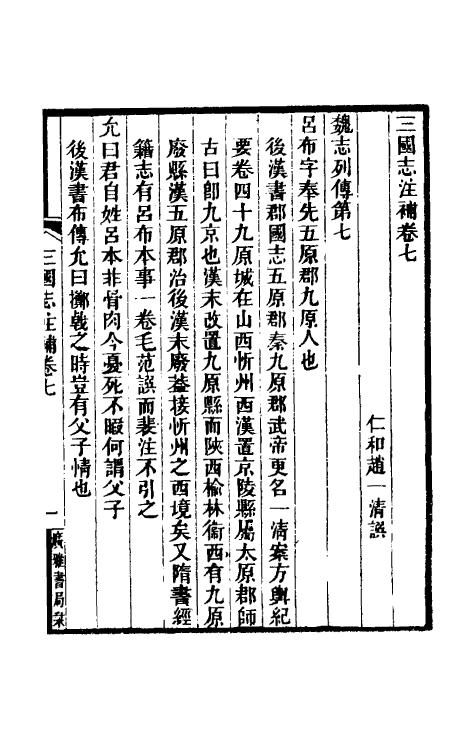 三國志注補卷七
仁和趙一清誤
魏志列傳第七
呂布字奉先五原郡九原人也
後漢書郡國志五原郡秦九原郡武帝更名一清案方輿紀
要卷四十九原城在山西忻州西漢置京陵縣屬太原郡師
古曰卽九京也漢末改置九原縣而陝西榆林衞西有九原
廢縣漢五原郡治後漢末廢葢接忻州之西境矣又隋書經
籍志有呂布本事一卷毛范誤而裴注不引之
允曰君自姓呂本非骨肉今憂死不暇何謂父子
後漢書布傳允曰擲戟之時豈有父子情也
三國志注補卷七
一
廣雅書局栞